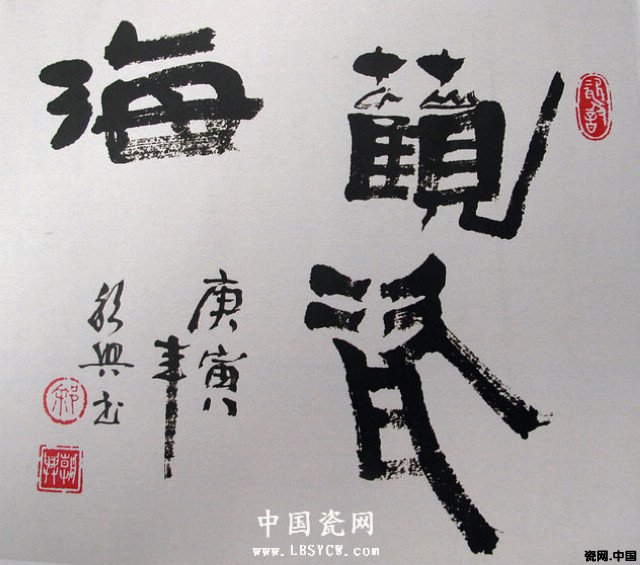 觀
海
庚寅
年
興书
中国瓷网
www.LBSYCW.com
瓷网.中国